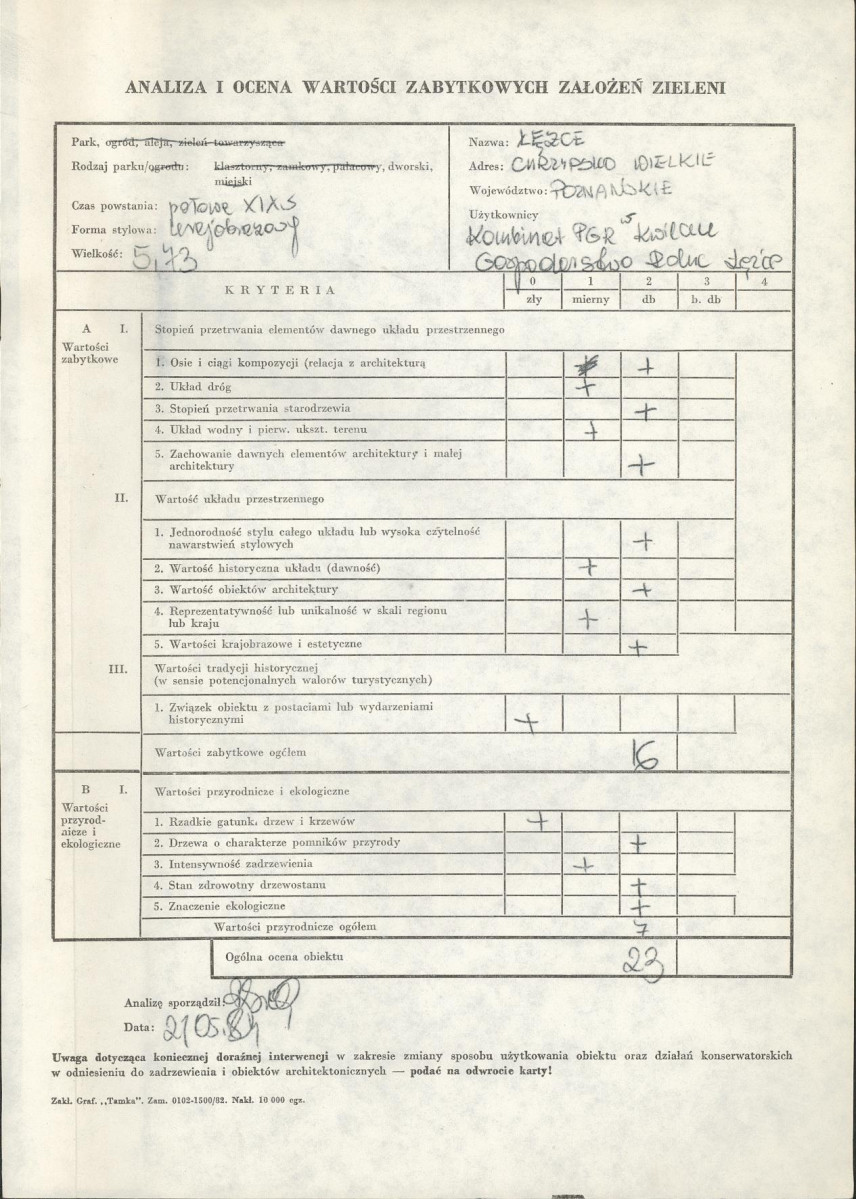 ANALIZA I OCENA WARTOŚCI ZABYTKOWYCH ZAŁOŻEŃ ZIELENI
Park, ogród, aleja, zieleń towarzysząca
Rodzaj parku/ogrodu: klasztorny, zamkowy, pałacowy, dworski,
miejski
Czas powstania: połowa XIX s
Forma stylowa: krajobrazowy
Wielkość: 5,73
Nazwa: ŁĘŻCE
Adres: CHRZYPSKO WIELKIE
Województwo: POZNAŃSKIE
Użytkownicy
Kombinat PGR w Kwilczu
Gospodarstwo Rolne Łężce
KRYTERIA 0 1 2 3 4
zły mierny db b. db
A I. Stopień przetrwania elementów dawnego układu przestrzennego
Wartości
zabytkowe
1. Osie i ciągi kompozycji (relacja z architekturą +
2. Układ dróg +
3. Stopień przetrwania starodrzewia +
4. Układ wodny i pierw. ukszt. terenu +
5. Zachowanie dawnych elementów architektury i małej
architektury +
II. Wartość układu przestrzennego
1. Jednorodność stylu całego układu lub wysoka czytelność
nawarstwień stylowych +
2. Wartość historyczna układu (dawność) +
3. Wartość obiektów architektury +
4. Reprezentatywność lub unikalność w skali regionu
lub kraju +
5. Wartości krajobrazowe i estetyczne +
III. Wartości tradycji historycznej
(w sensie potencjonalnych walorów turystycznych)
1. Związek obiektu z postaciami lub wydarzeniami
historycznymi +
Wartości zabytkowe ogółem 16
B I. Wartości przyrodnicze i ekologiczne
Wartości
przyrod-
nicze i
ekologiczne
1. Rzadkie gatunki drzew i krzewów +
2. Drzewa o charakterze pomników przyrody +
3. Intensywność zadrzewienia +
4. Stan zdrowotny drzewostanu +
5. Znaczenie ekologiczne +
Wartości przyrodnicze ogółem 7
Ogólna ocena obiektu 23
Analizę sporządził:
Data: 21 05. 84
Uwaga dotycząca koniecznej doraźnej interwencji w zakresie zmiany sposobu użytkowania obiektu oraz działań konserwatorskich
w odniesieniu do zadrzewienia i obiektów architektonicznych — podać na odwrocie karty!
Zakł. Graf. „Tamka". Zam. 0102-1500/82. Nakł. 10 000 egz.